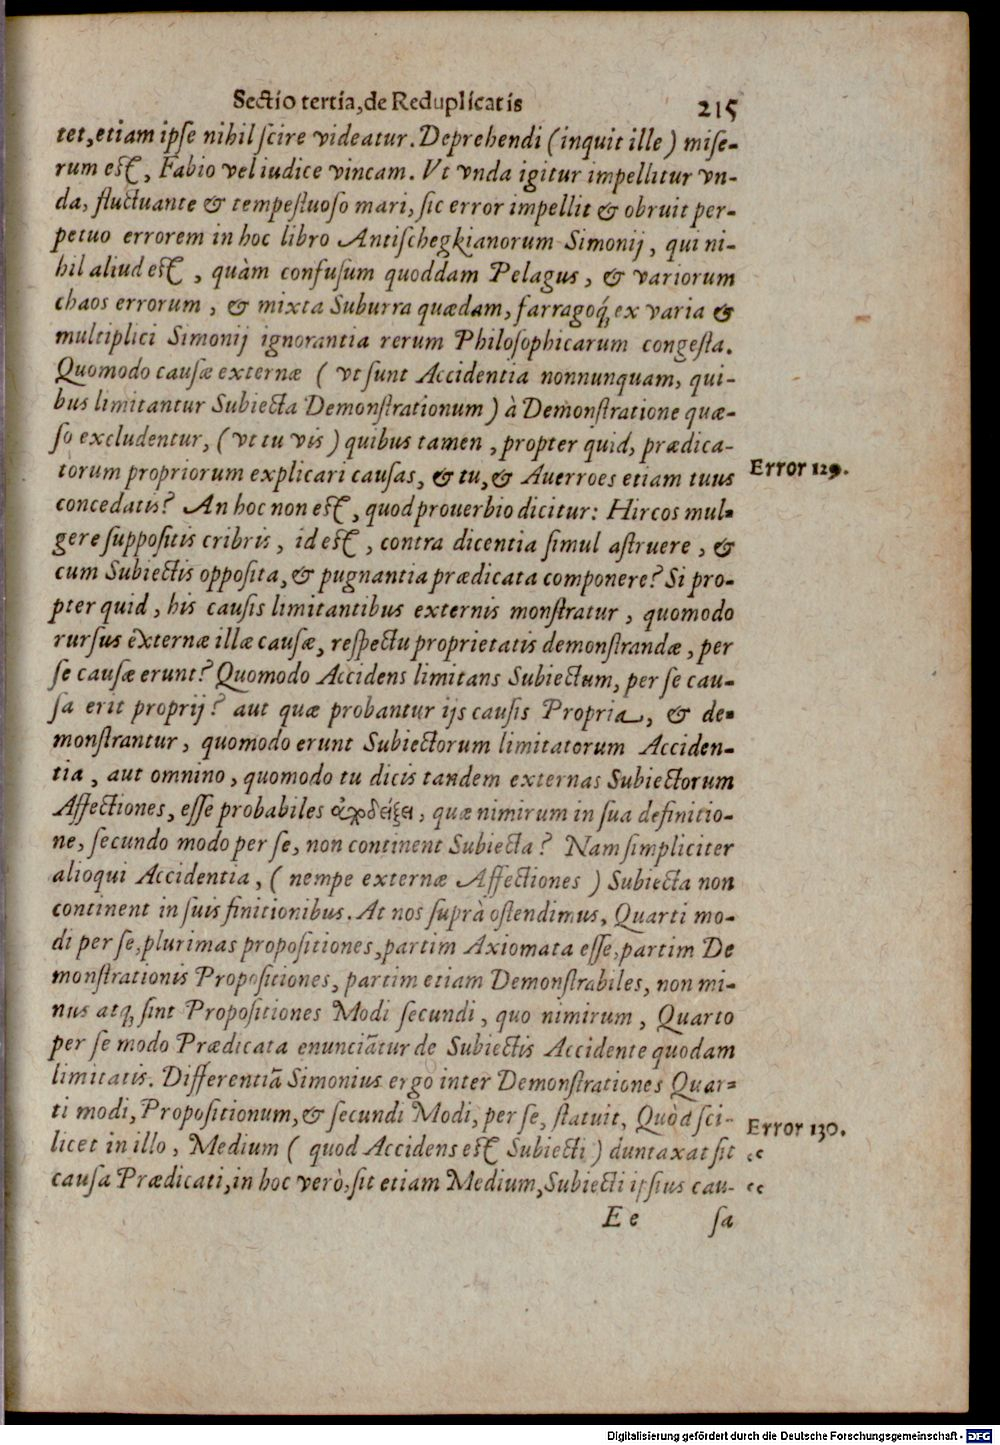 Sectio tertia, de Reduplicatis 215
tet, etiam ipse nihil scire videatur. Deprehendi (inquit ille) mise-
rum est, Fabio vel iudice vincam. Vt vnda igitur impellitur vn-
da, fluctuante & tempestuoso mari, sic error impellit & obruit per-
petuo errorem in hoc libro Antischegkianorum Simonij, qui ni-
hil aliud est, quàm confusum quoddam Pelagus, & variorum
chaos errorum, & mixta Suburra quædam, farragoq́; ex varia &
multiplici Simonij ignorantia rerum Philosophicarum congesta.
Quomodo causæ externæ (vt sunt Accidentia nonnunquam, qui-
bus limitantur Subiecta Demonstrationum) à Demonstratione quæ-
so excludentur, (vt tu vis) quibus tamen, propter quid, prædica-
torum propriorum explicari causas, & tu, & Auerroes etiam tuus
Error 129.
concedatis? An hoc non est, quod prouerbio dicitur: Hircos mul-
gere suppositis cribris, id est, contra dicentia simul astruere, &
cum Subiectis opposita, & pugnantia prædicata componere? Si pro-
pter quid, his causis limitantibus externis monstratur, quomodo
rursus externæ illæ causæ, respectu proprietatis demonstrandæ, per
se causæ erunt? Quomodo Accidens limitans Subiectum, per se cau-
sa erit proprij? aut quæ probantur ijs causis Propria, & de-
monstrantur, quomodo erunt Subiectorum limitatorum Acciden-
tia, aut omnino, quomodo tu dicis tandem externas Subiectorum
Affectiones, esse probabiles ἀποδείξει, quæ nimirum in sua definitio-
ne, secundo modo per se, non continent Subiecta? Nam simpliciter
alioqui Accidentia, (nempe externæ Affectiones) Subiecta non
continent in suis finitionibus. At nos suprà ostendimus, Quarti mo-
di per se, plurimas propositiones, partim Axiomata esse, partim De
monstrationis Propositiones, partim etiam Demonstrabiles, non mi-
nus atq; sint Propositiones Modi secundi, quo nimirum, Quarto
per se modo Prædicata enunciātur de Subiectis Accidente quodam
limitatis. Differentiā Simonius ergo inter Demonstrationes Quar-
ti modi, Propositionum, & secundi Modi, per se, statuit, Quòd sci-
Error 130.
licet in illo, Medium (quod Accidens est Subiecti) duntaxat sit
causa Prædicati, in hoc verò, sit etiam Medium, Subiecti ipsius cau-
E e sa
Digitalisierung gefördert durch die Deutsche Forschungsgemeinschaft - DFG